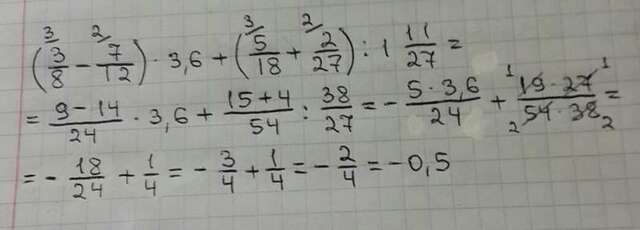 (3/8 ³ - 7/12 ²) · 3,6 + (5/18 ³ + 2/27 ²) : 1 11/27 =
= (9-14)/24 · 3,6 + (15+4)/54 : 38/27 = - (5·3,6)/24 + (19·27)/(54·38) ¹ ¹ ₂ ₂ =
= - 18/24 + 1/4 = - 3/4 + 1/4 = - 2/4 = -0,5